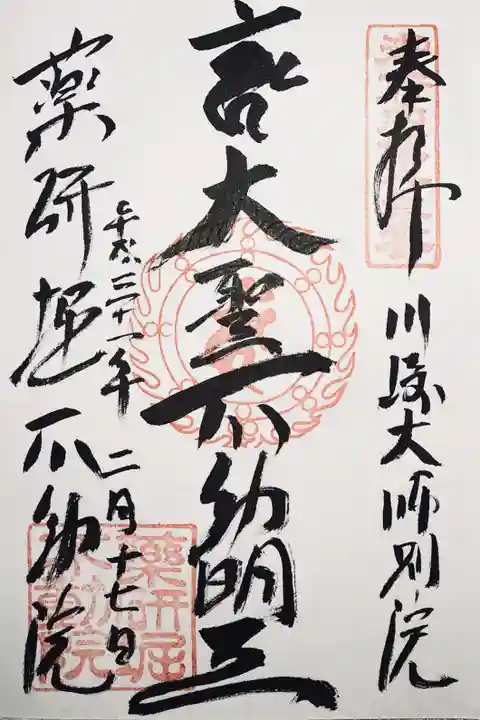 奉拝
川崎大師別院
大聖不動明王
平成三十一年
二月十七日
薬研堀不動院
薬研堀不動院